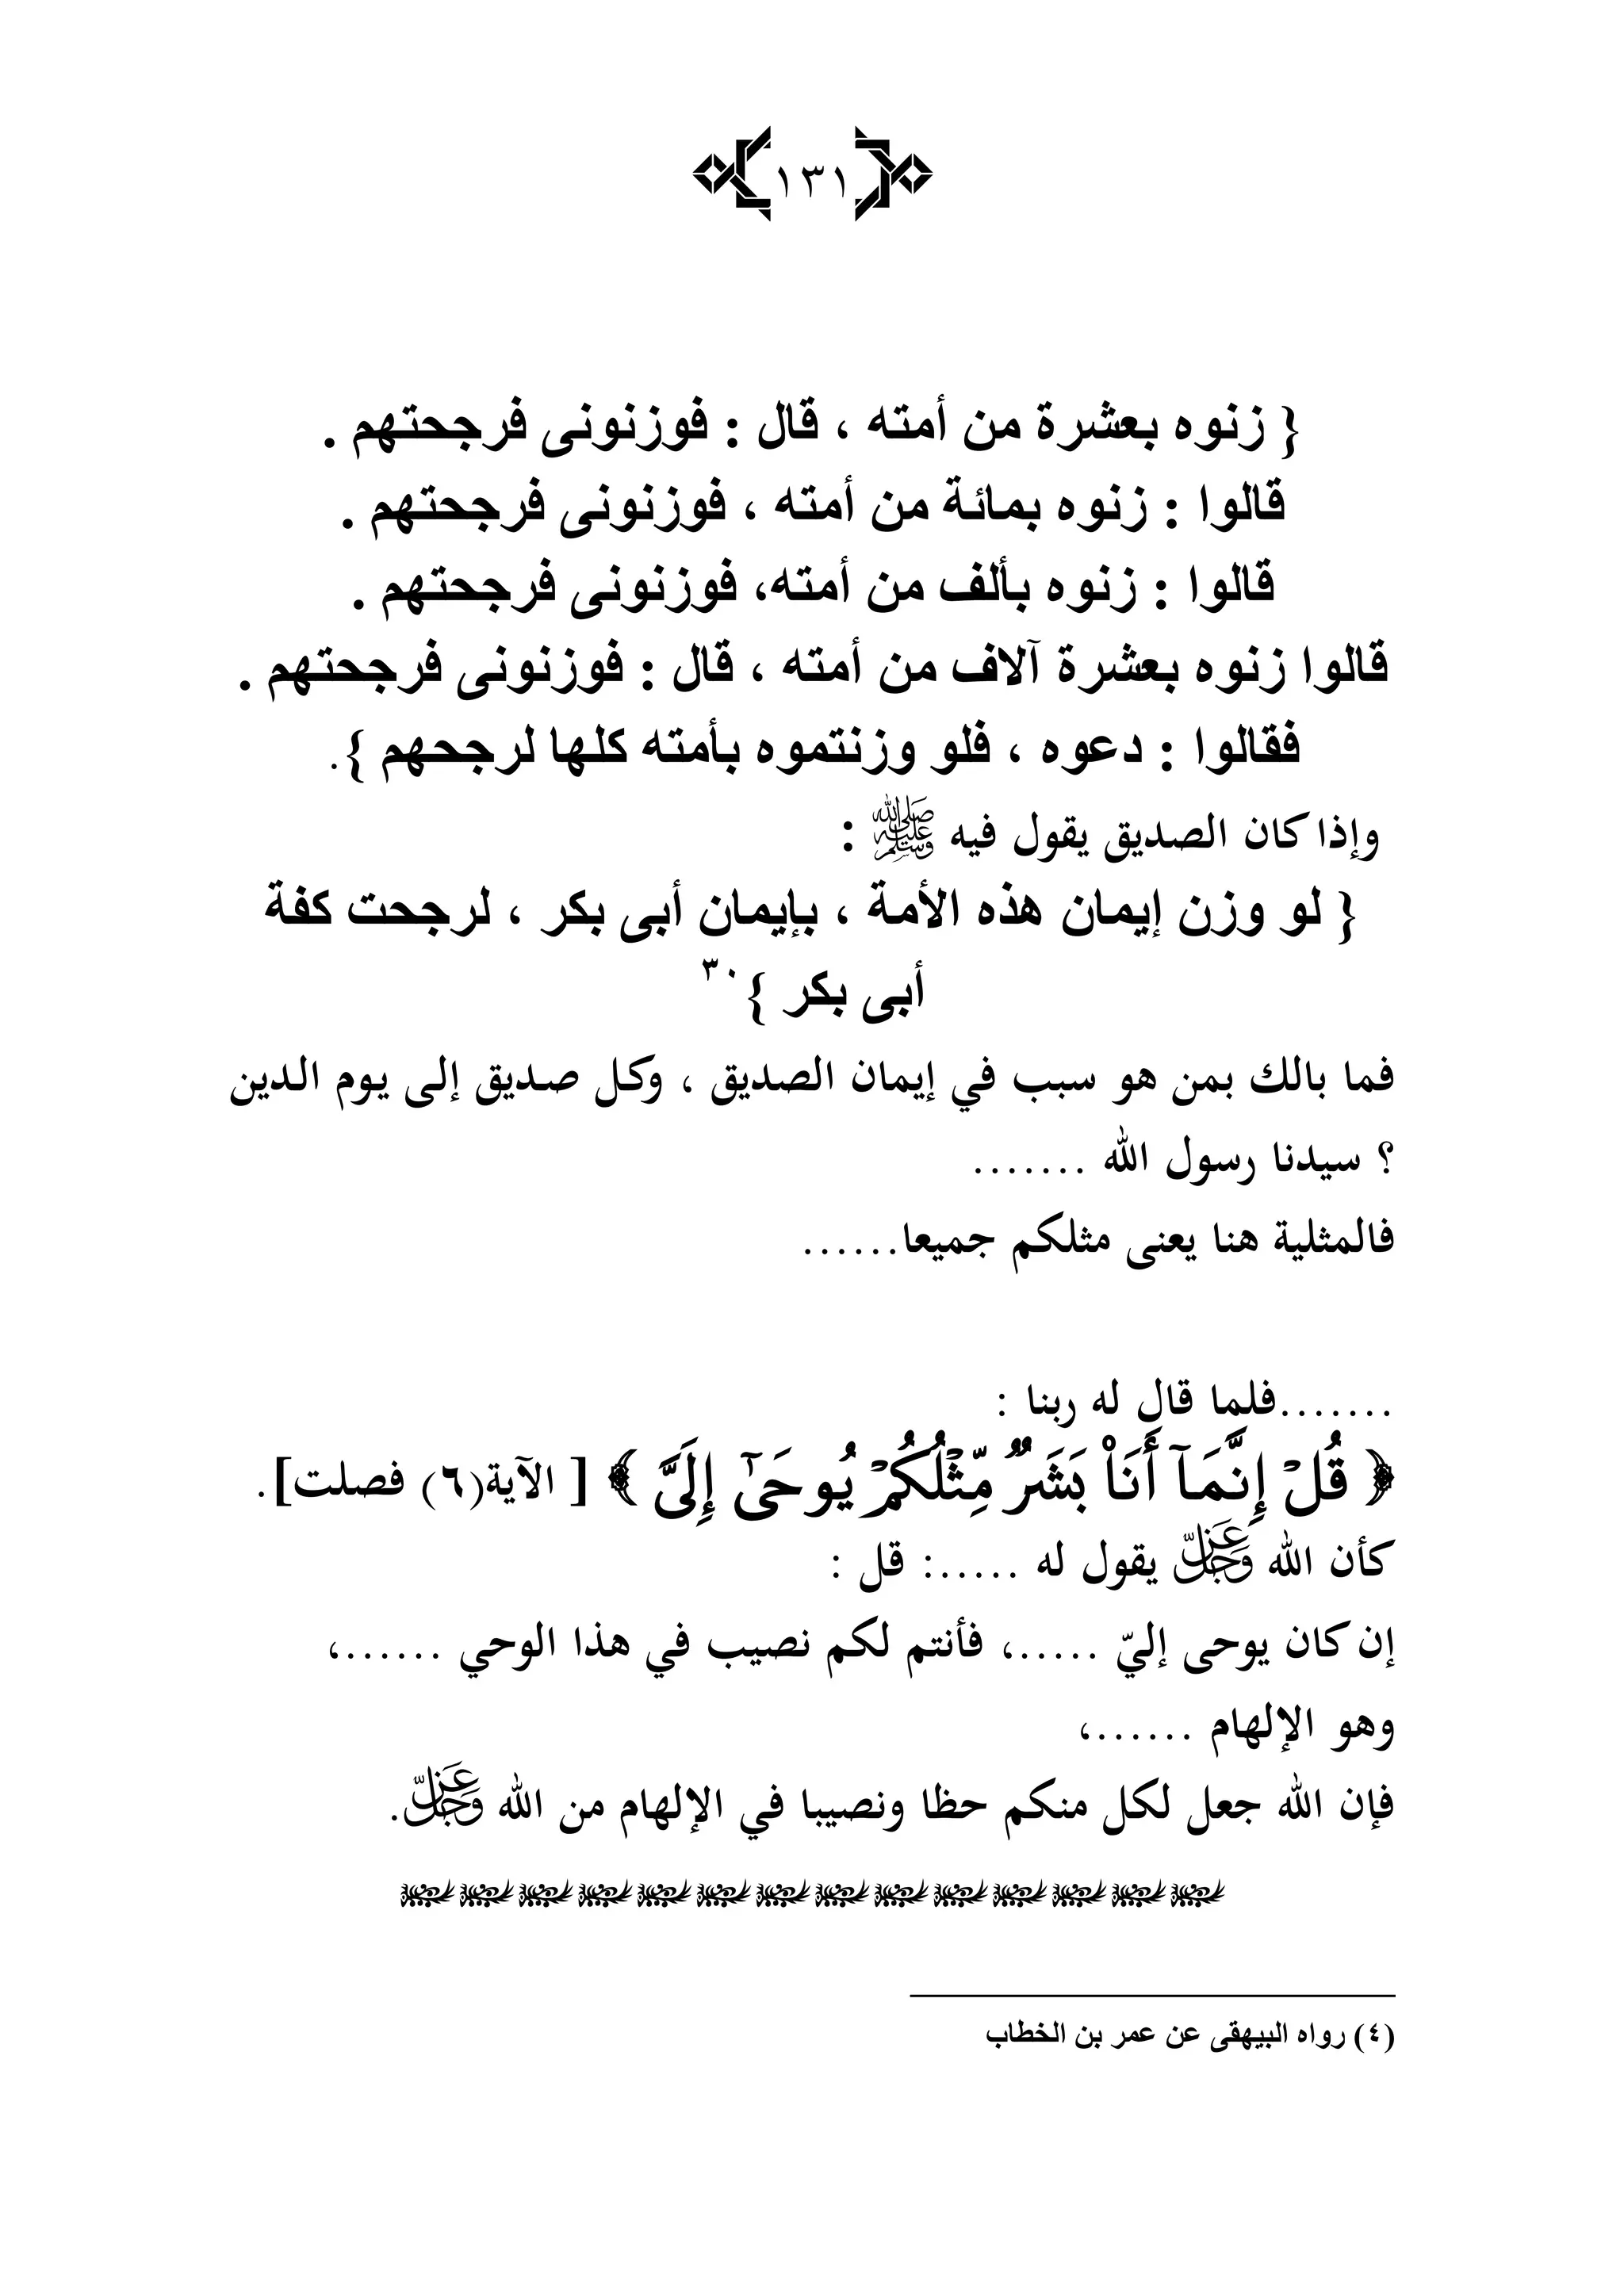 ١٣١
{ زنوه بعشرة من أمته ، قال : فوزنونى فرجحتهم .
قالوا : زنوه بمائة من أمته ، فوزنونى فرجحتهم .
قالوا : زنوه بألف من أمته، فوزنونى فرجحتهم .
قالوا زنوه بعشرة آلاف من أمته ، قال : فوزنونى فرجحتهم .
فقالوا : دعوه ، فلو وزنتموه بأمته كلها لرجحهم }.
وإذا كان الصديق يقول فيه ﷺ :
{ لو وزن إيمان هذه الأمة ، بإيمان أبى بكر ، لرجحت كفة
أبى بكر }٣٠
فما بالك بمن هو سبب في إيمان الصديق ، وكل صديق إلى يوم الدين
؟ سيدنا رسول الله .......
فالمثلية هنا يعنى مثلكم جميعا......
.......فلما قال له ربنا :
﴿ قُلۡ إِنَّمَآ أَنَا۠ بَشَرٞ مِّثۡلُكُمۡ يُوحَىٰٓ إِلَيَّ ﴾ [ الآية(٦) فصلت].
كأن الله ﷻ يقول له .....: قل :
إن كان يوحى إليّ .....، فأنتم لكم نصيب في هذا الوحي ......،
وهو الإلهام ......،
فإن الله جعل لكل منكم حظا ونصيبا في الإلهام من الله ﷻ.
(٤) رواه البيهقى عن عمر بن الخطاب